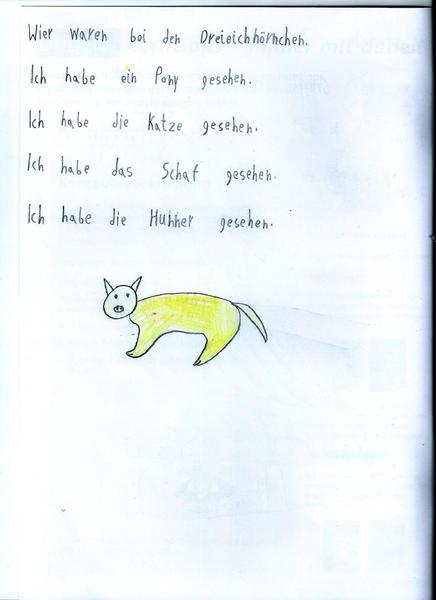 Wier waren bei den Dreieichhörnchen.
Ich habe ein Pony gesehen.
Ich habe die Katze gesehen.
Ich habe das Schaf gesehen.
Ich habe die Huhner gesehen.